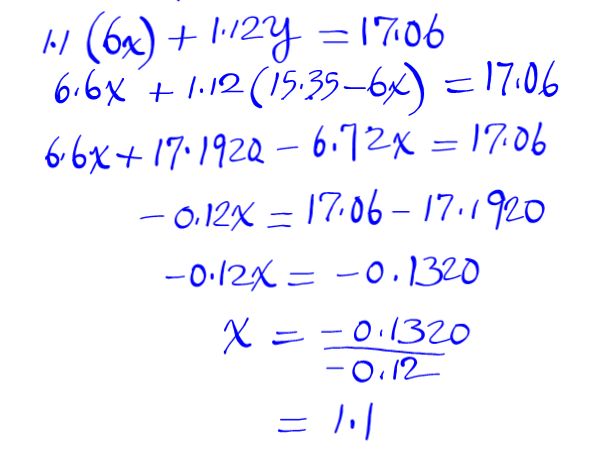 1.1 (6x) + 1.12y = 17.06
6.6x + 1.12(15.35-6x) = 17.06
6.6x + 17.1920 - 6.72x = 17.06
-0.12x = 17.06 - 17.1920
-0.12x = -0.1320
x = -0.1320
-0.12
= 1.1